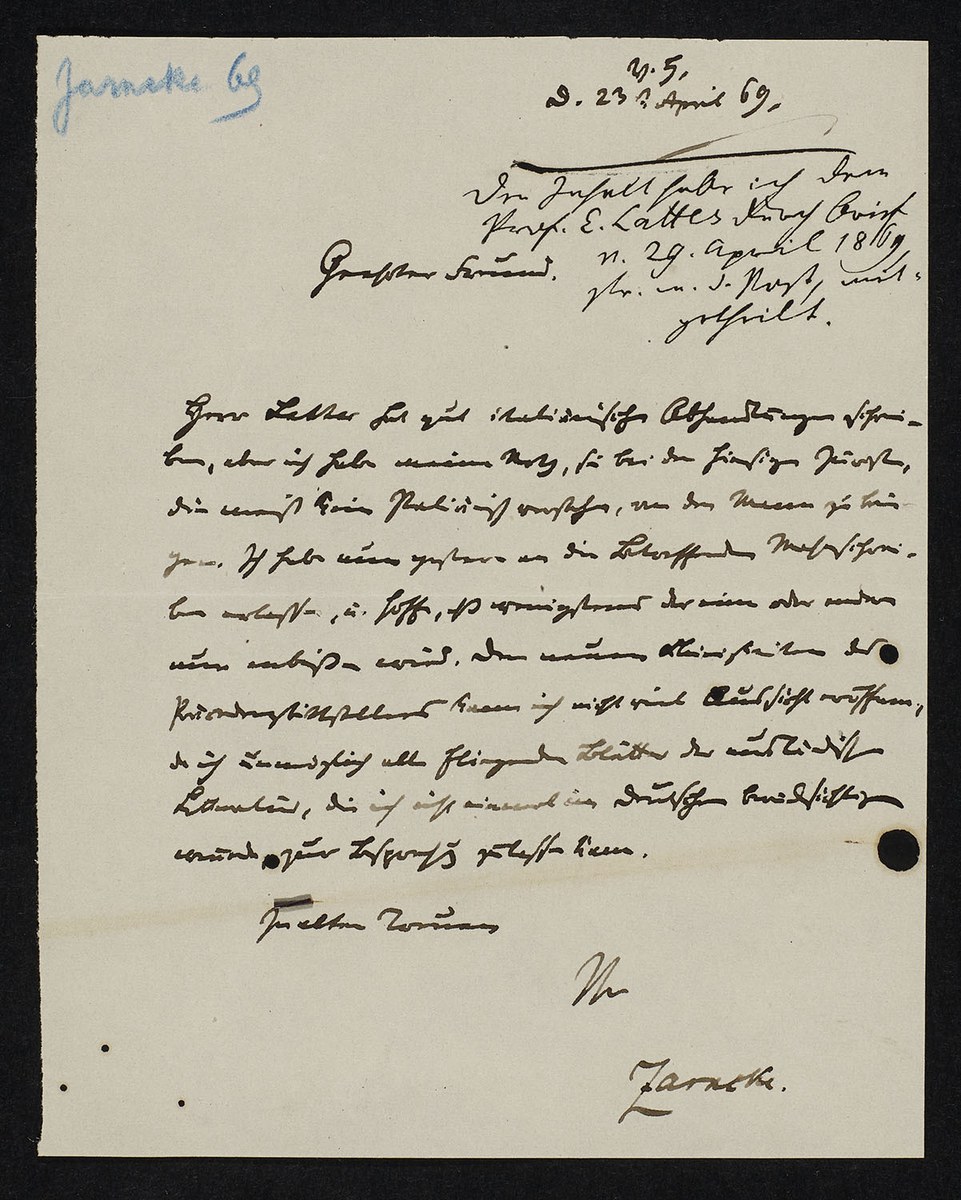 Zarncke 69
d. 23 April 69.
Den Inhalt habe ich dem
Prof. E. Lattes durch Brief
v. 29. April 1869
str. m. d. Post, mit-
getheilt.
Geehrter Freund.
Herr Lattes hat gut italiänische Abhandlungen schrei-
ben, aber ich habe meine Noth, sie bei den hiesigen Juristen,
die meist kein Italiänisch verstehn, an den Mann zu brin-
gen. Ich habe nun gestern an die Betreffenden Mahnschrei-
ben erlassen, u. hoffe, daß wenigstens der eine oder andere
nun anbeißen wird. Den neuen des
kann ich nicht viel Aussicht eröffnen,
da ich unmöglich alle fliegenden Blätter der ausländischen
Litteratur, die ich nicht einmal im Deutschen berücksichtigen
würde, zur Besprechung zulassen kann.
In alter Treue
Ihr
Zarncke.